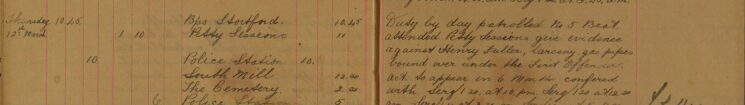 Thursday 10.45 Bps Stortford. 10.45 Duty by day patrolled No 5 Beat
12th March 1 10 Petty Sessions 11 attended Petty Sessions give evidence
against Henry Fuller, larceny, gas pipes
10. Police Station 10. bound over under the First Offender
South Mill 12.00 act to appear in 6 Months conferred
The Cemetery 2.00 with Sergt 120, at 10. pm, Sergt 120 at 2.00
6 Police 5